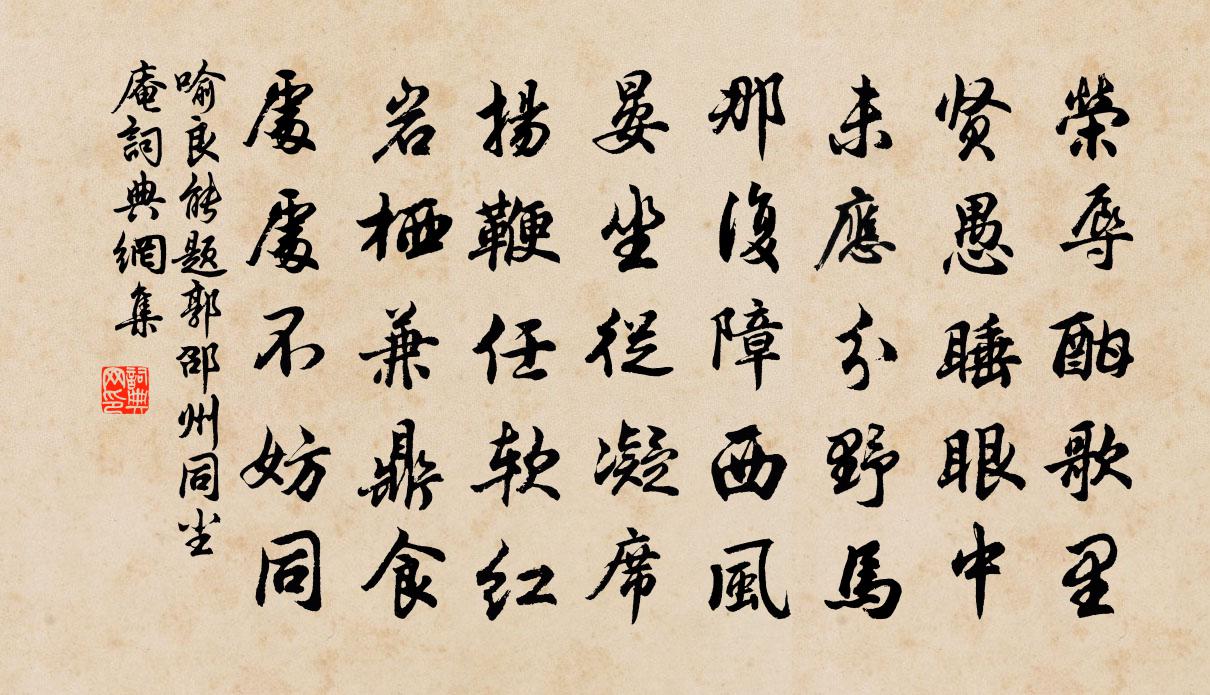 榮辱酣歌里
贤愚睡眼中
未應分野馬
那復障西風
晏坐從凝席
揚鞭任软红
岩栖兼鼎食
處處不妨同
喻良能题郭邵州同尘
庵詞典網集
詞典
网印